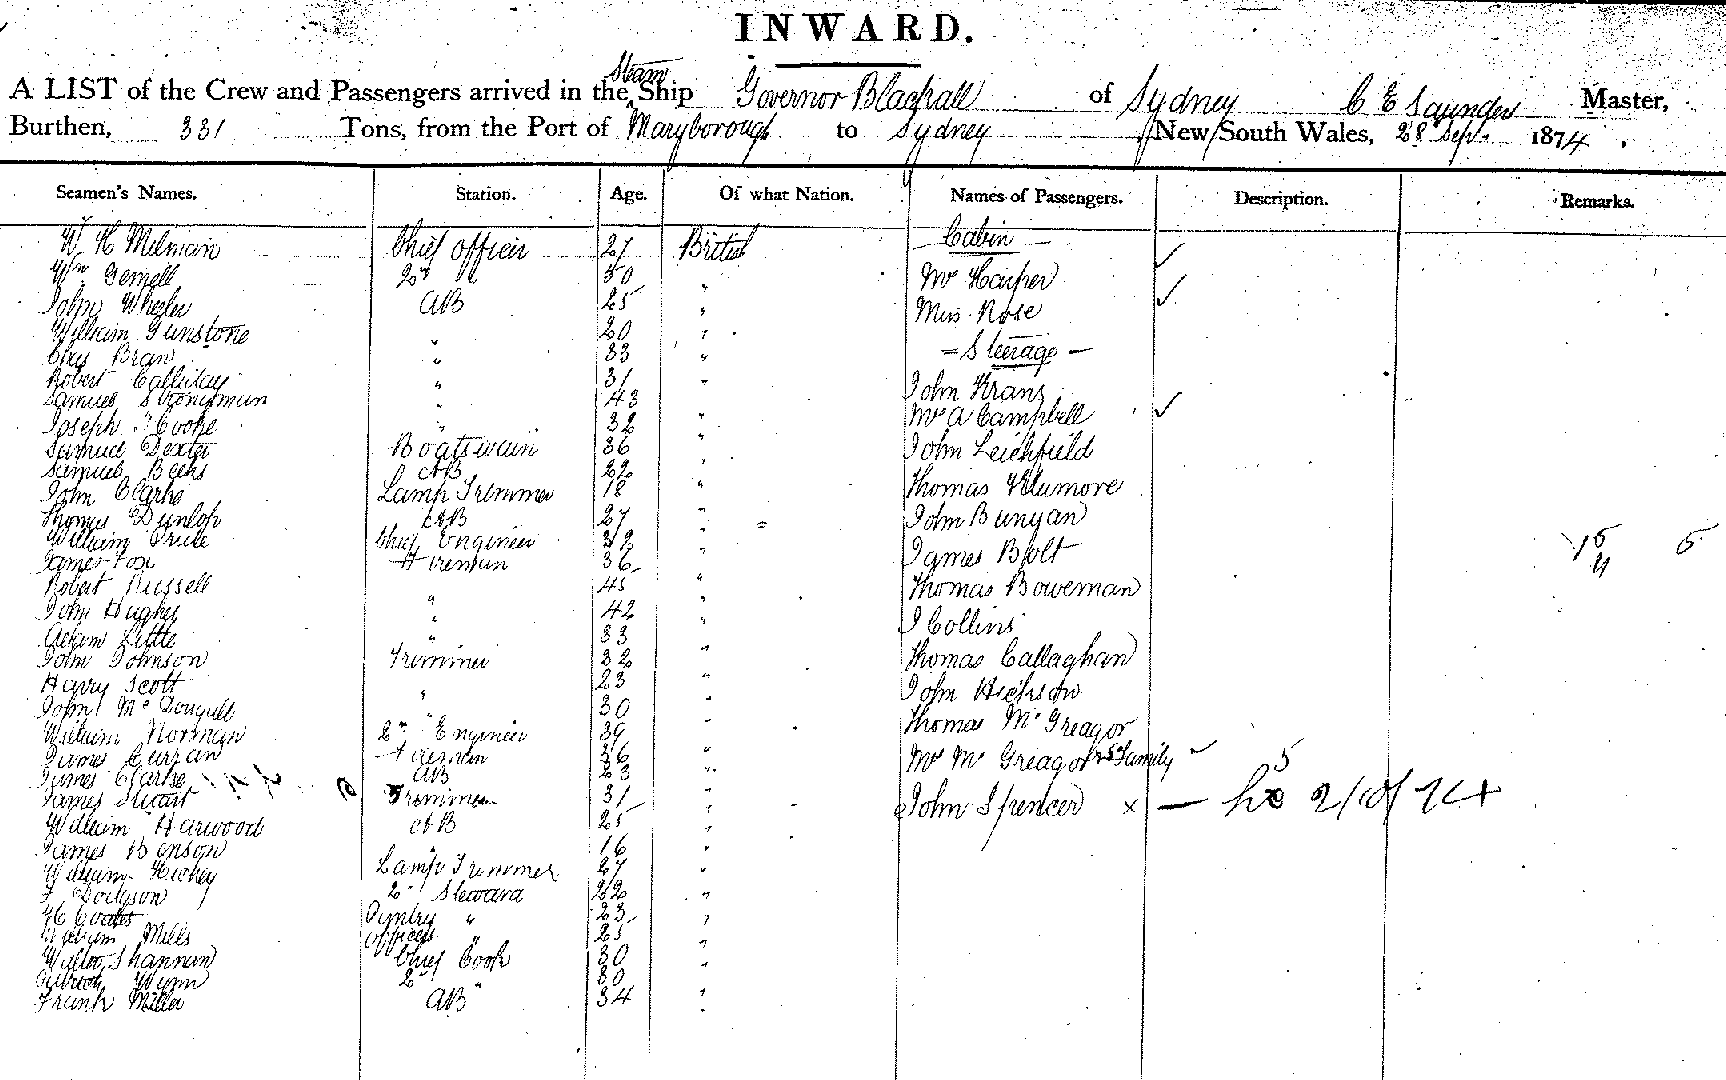 INWARD.
A LIST of the Crew and Passengers arrived in the Steam Ship Governor Blackall of Sydney C E Saunders Master,
Burthen, 331 Tons, from the Port of Maryborough to Sydney New South Wales, 28 Sep. 1874.
Seamen's Names. Station. Age. Of what Nation. Names of Passengers. Description. Remarks.
W H Milman Chief officer 27 British Cabin
Wm Gemell 2nd 30 " Mr Harper
John Wheeler AB 25 " Miss Rose
William Gunstone " 20 "
Chas Bran " 33 " - Steerage -
Robert " 31 "
Samuel " 43 " John Krans
Joseph Cooke " 32 " Mr A Campbell
Samuel Dexter Boatswain 36 " John Leichfield
Samuel AB 22 "
John Clarke Lamp Trimmer 18 " Thomas
Thomas Dunlop AB 27 " John Bunyan
William Chief Engineer 32 "
James Fox Fireman 36 " James Bolt
Robert Russell " 45 " Thomas Bowerman
John Hughes " 42 "
Little " 33 " J Collins
John Johnson Trimmer 32 " Thomas Callaghan
Harry Scott " 23 " John Hickson
John McDougall 30 "
William Norman 2nd Engineer 39 " Thomas McGreagor
James Curran Fireman 36 " Mr McGreagor & Family
James Clarke AB 23 "
James Stuart Trimmer 31 " John Spencer x
William Harwood AB 25 "
James Benson " 16 "
William Hickey Lamp Trimmer 27 "
J Dodgson 2nd Steward 22 "
H Coates Pantry " 23 "
William Mills Officers " 25 "
Shannan Chief Cook 30 "
2nd " 30 "
Frank Miller AB 34 "